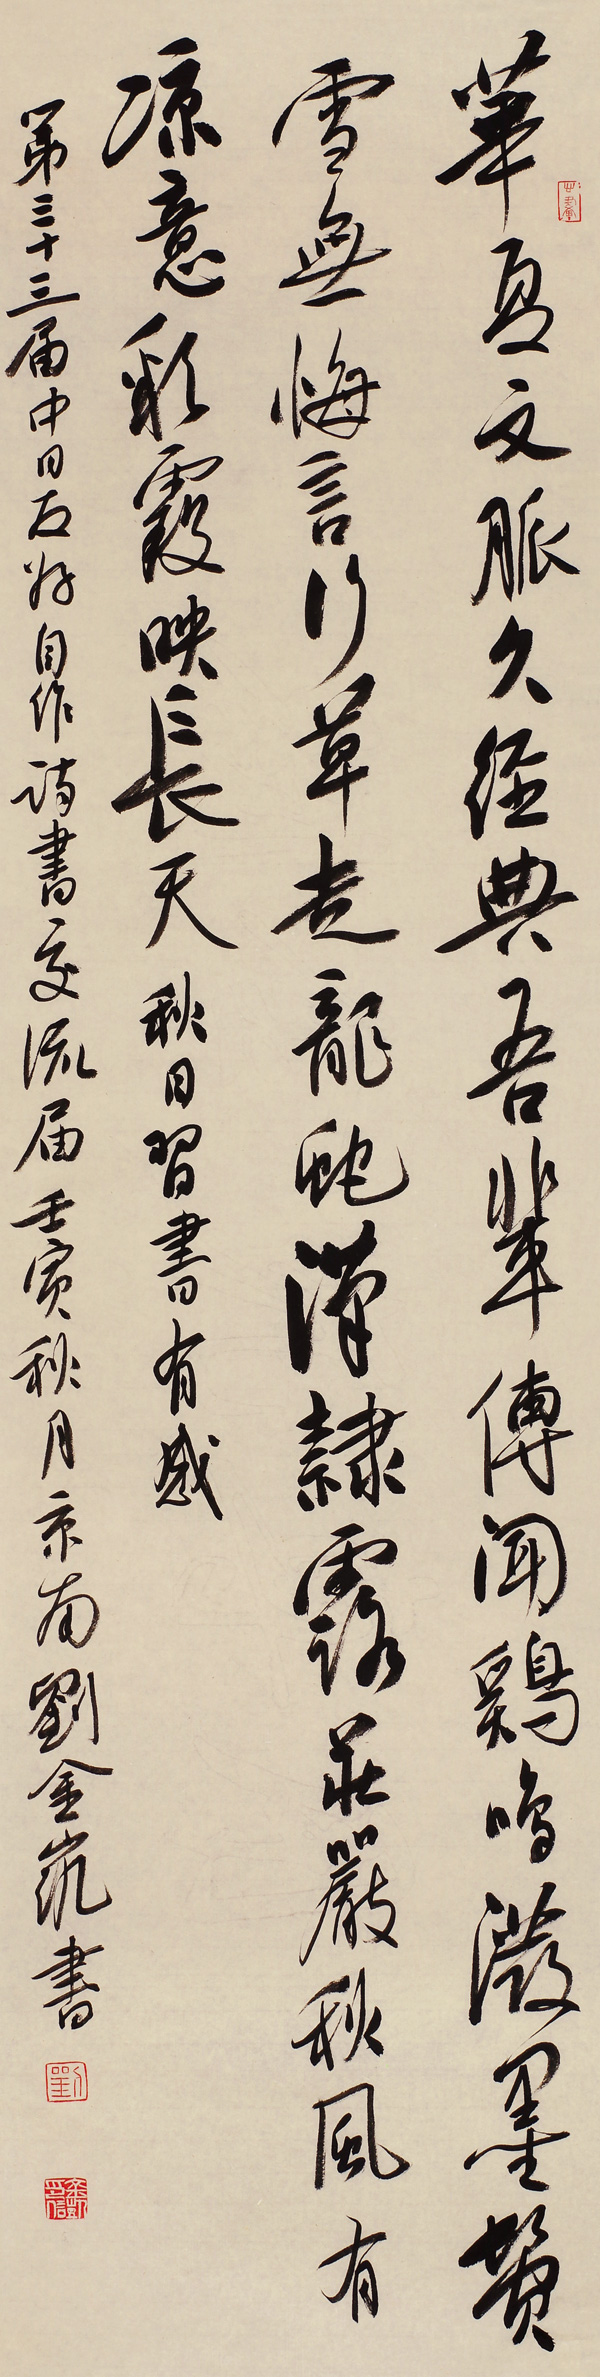 華夏文脈久經典吾輩傳聞鷄鳴潑墨鬢
雪無悔言行草走龍蛇漢隸露莊嚴秋風有
涼意彩霞映長天秋日習書有感
第三十三届中日友好自作詩書交流届壬寅秋月京南劉金凱書
劉